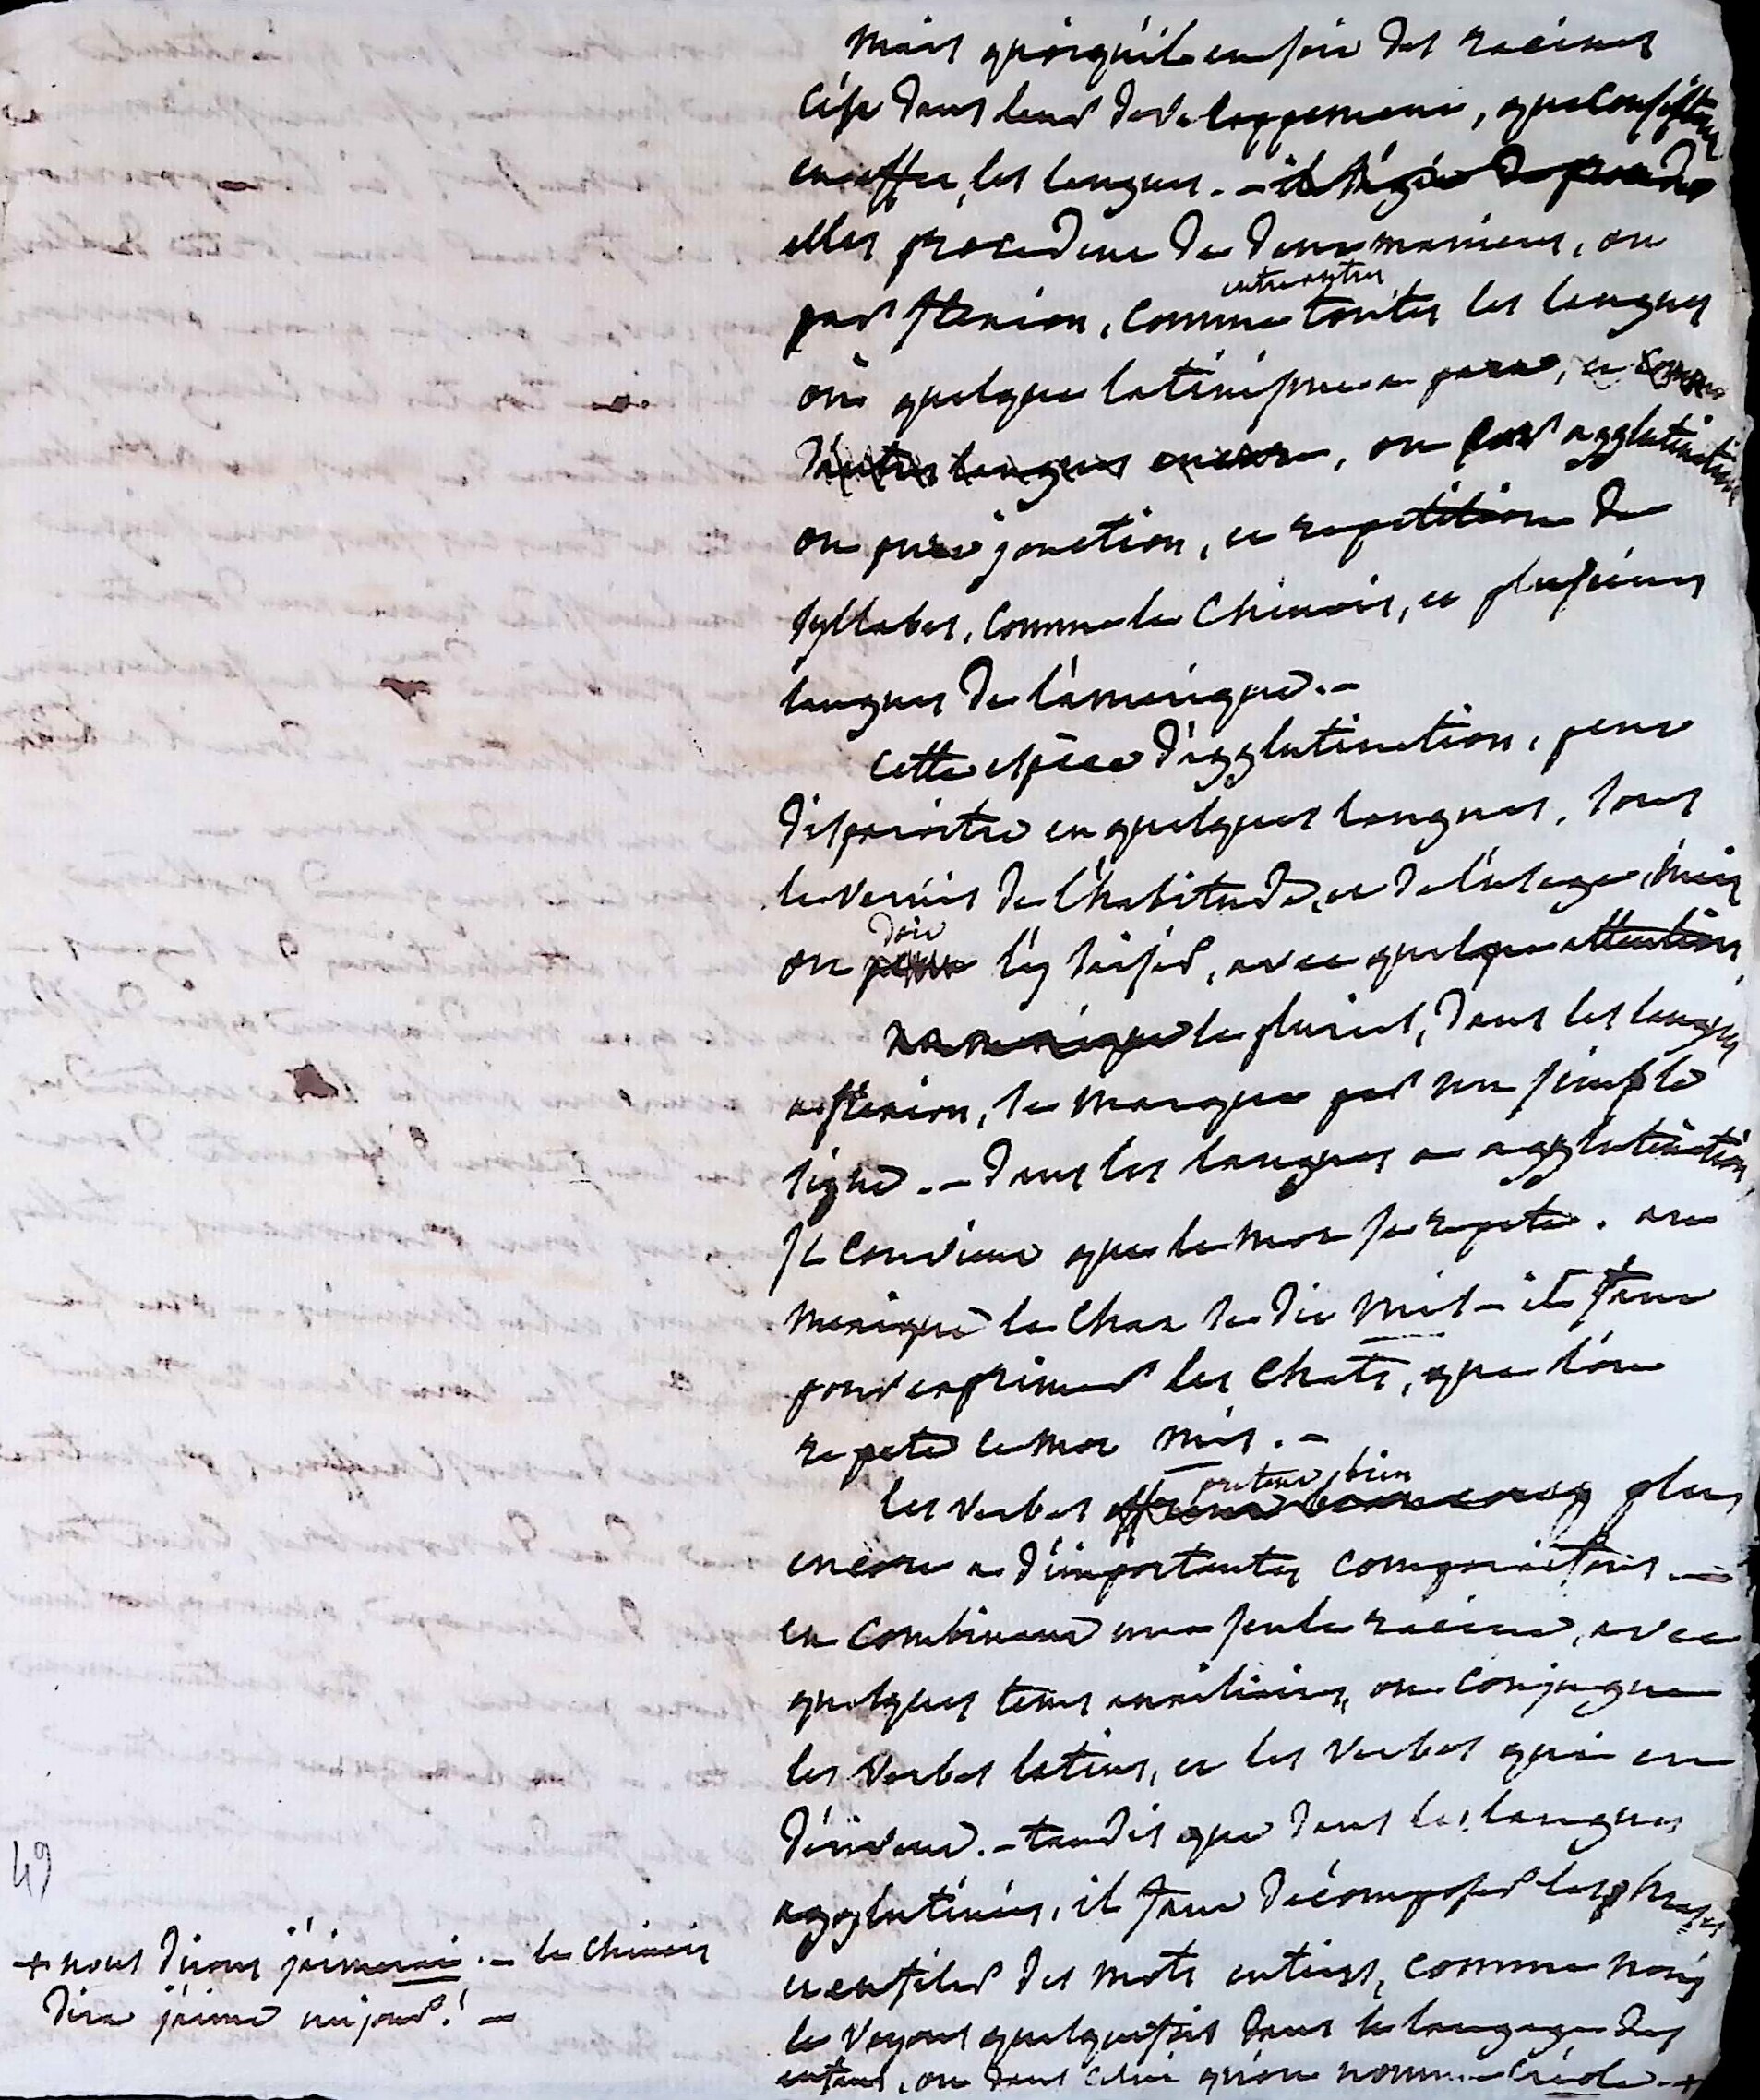 Mais quoiqu'il en soit des racines
c'est dans leur developpement, que consistent
en effet, les langues. - il s'agit de proceder
elles procedent de deux manieres, ou
par flexion, comme entre autres toutes les langues
où quelque latinisme a percé, et comme
d'autres langues encore, ou par agglutination
ou par jonction, et repetition de
syllabes, comme le Chinois, et plusieurs
langues de l'amerique. -
cette espece d'agglutination, peut
disparoitre en quelques langues, sous
le vernis de l'habitude, et de l'usage, mais
on peut doit l'y saisir, avec quelque attention,
le pluriel, dans les langues
a flexion, se marque par un simple
signe. - dans les langues a agglutination,
il convient que le mot se repete. au
mexique le chat se dit mis - il faut
pour exprimer les chats, que l'on
repete le mot mis. -
les verbes offrent beaucoup pretent bien plus
encore a d'importantes comparaisons. -
en combinant une seule racine, avec
quelques tems auxiliaires, on conjugue
les verbes latins, et les verbes qui en
dérivent. - tandis que dans les langues
agglutinées, il faut décomposer les phrases
et enfiler des mots entiers, comme nous
le voyons quelquefois dans le langage des
enfans, ou dans celui qu'on nomme Créole. +
49
+ nous disons j'aimerai. - le chinois
dira j'aime un jour! -